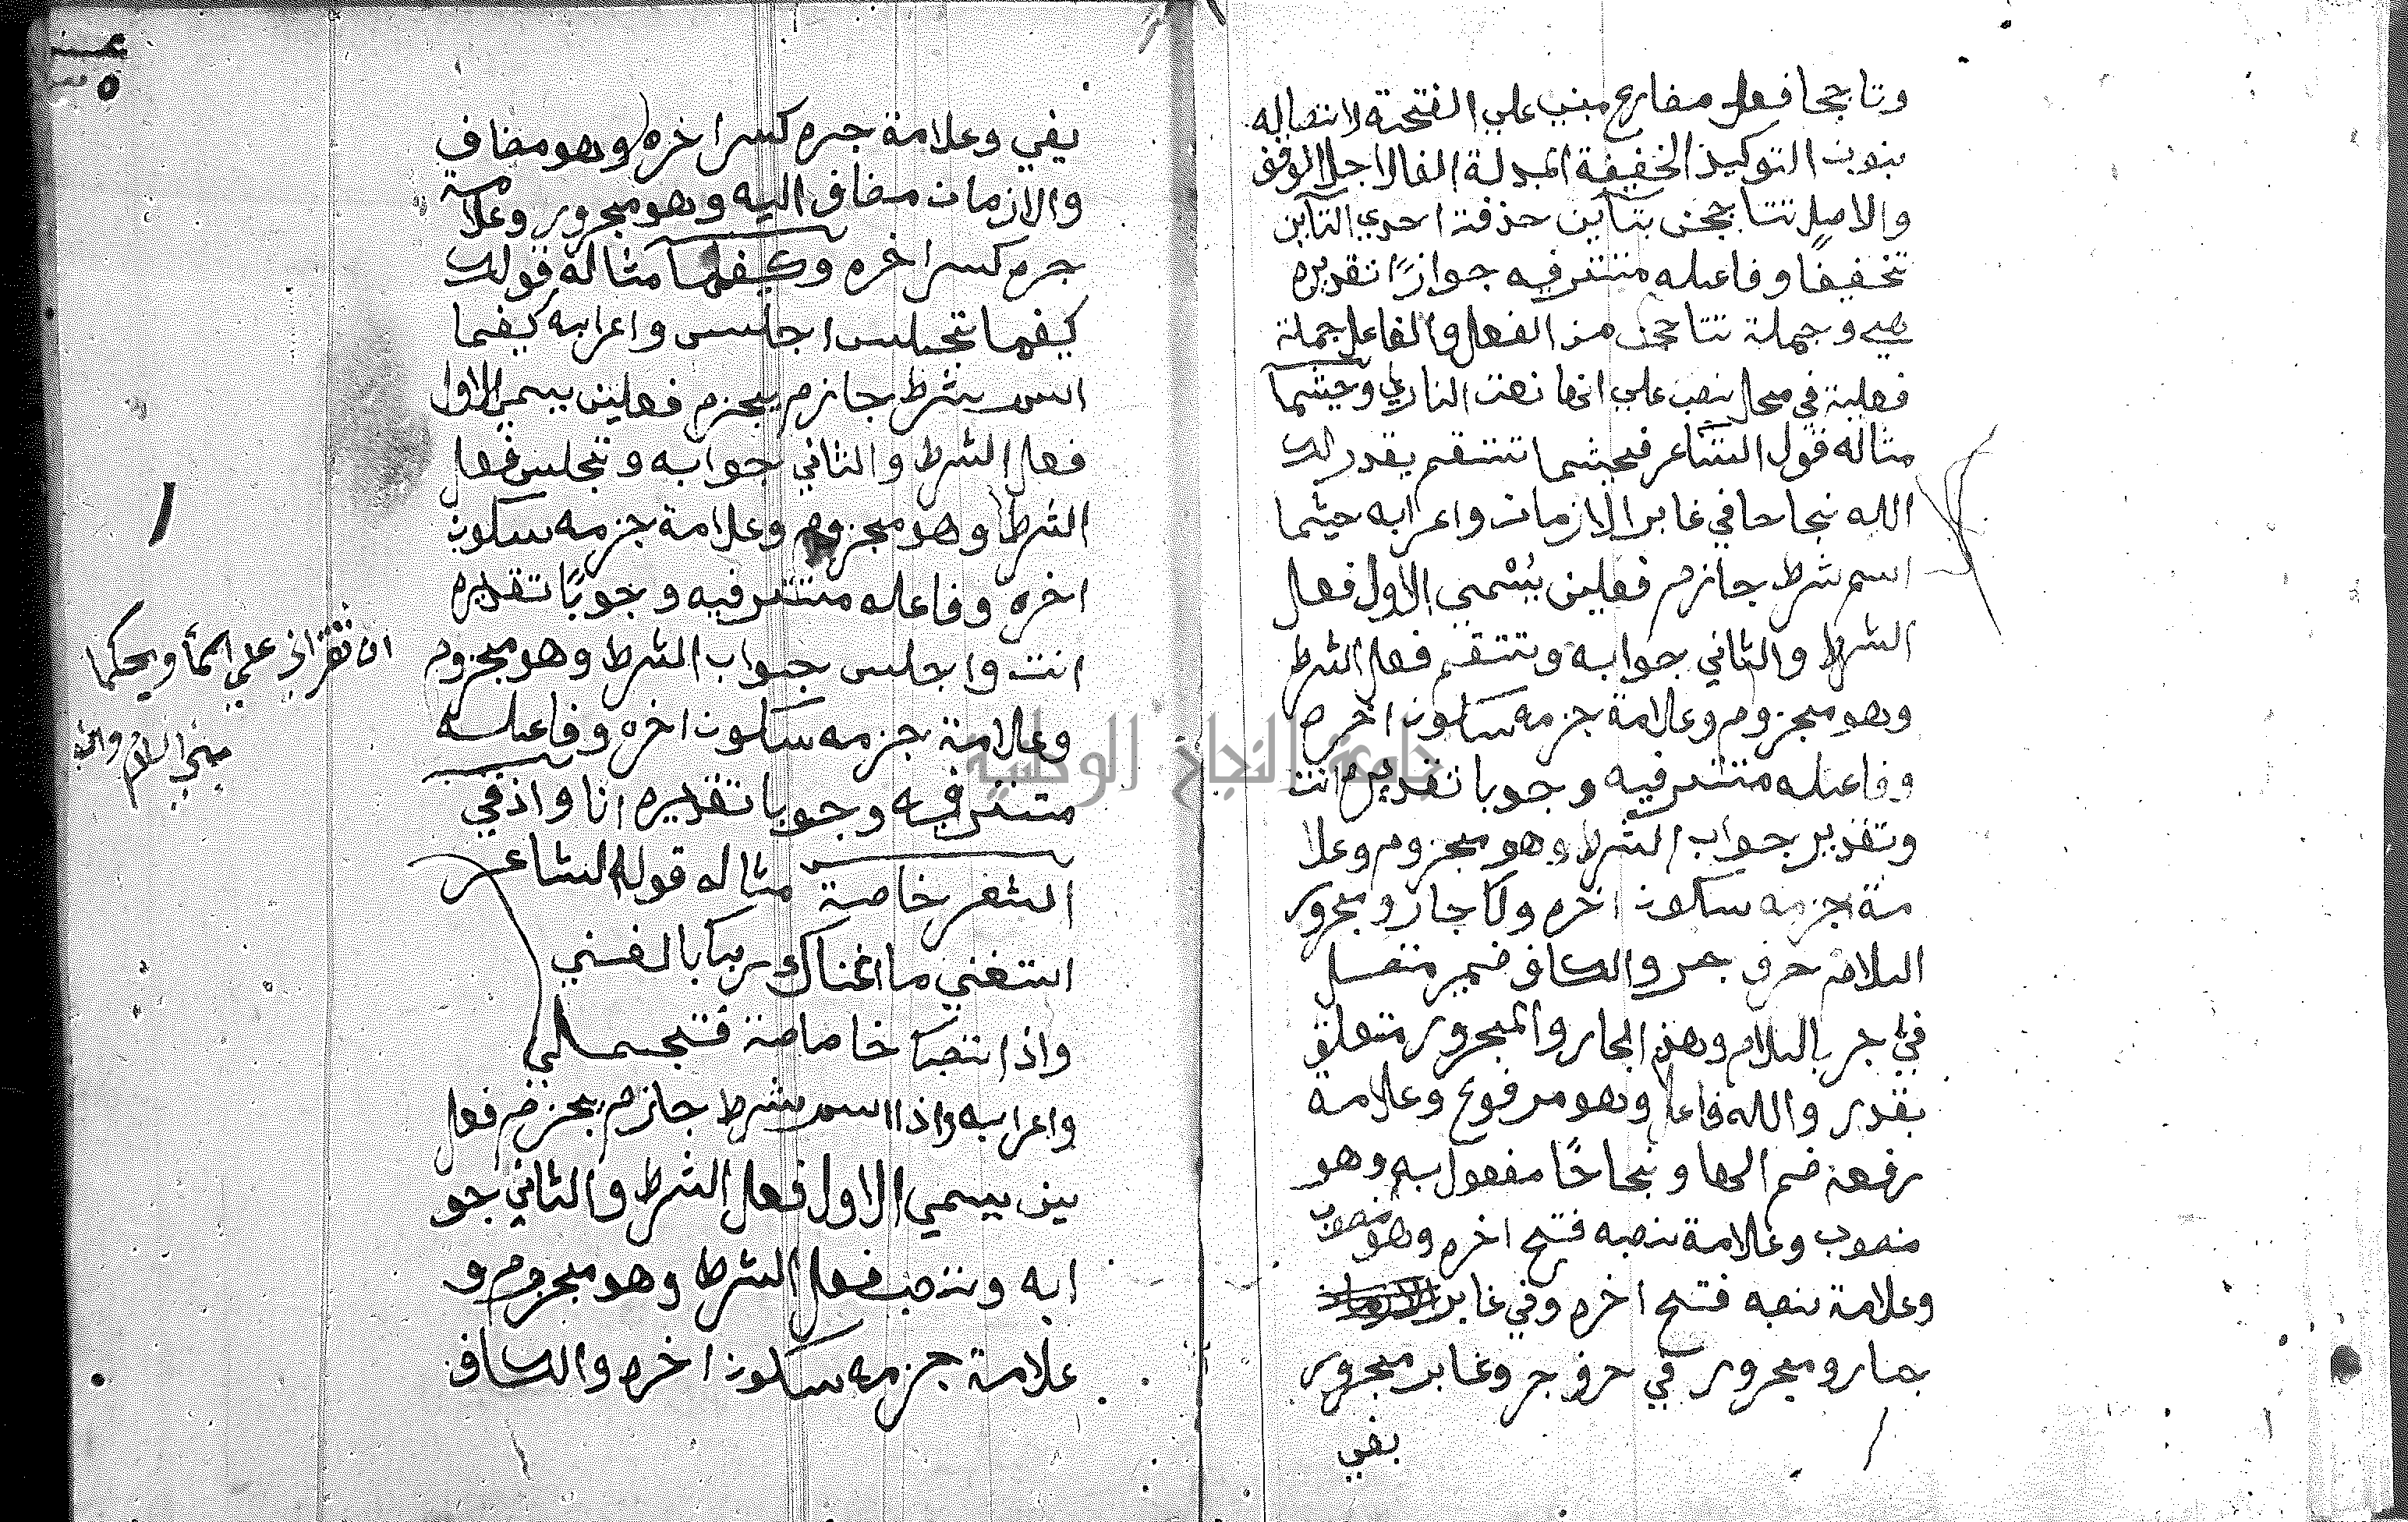 وتاججا فعل مضارع مبني علي الفتحة لاتصاله
بنون التوكيد الخفيفة المبدلة الفا لاجل الوقف
والاصل تتاججن بتآين حذفة احدي التآين
تخفيفا وفاعله مستتر فيه جوازًا تقديره
هي وجملة تتاججن من الفعل والفاعل جملة
فعلية في محل نصب علي انها نعت النار وحيثما
مثاله قول الشاعر فحيثما تستقم يقدر لك
الله نجاحا في غابر الازمان واعرابه حيثما
اسم شرط جازم فعلين يُسْمي الاول فعل
الشرط والثاني جوابه وتستقم فعل الشرط
وهو مجزوم وعلامة جزمه سكون اخره
وفاعله مستتر فيه وجوبا تقديره انت
وتقدير جواب الشرط وهو مجزوم وعلا
مة جزمه سكون اخره ولك جار ومجرور
اللام حرف جر والكاف ضمير متصل
في جر باللام وهذ الجار والمجرور متعلق
بقدر والله فاعل وهو مرفوع وعلامة
رفعه ضم الها ونجاحًا مفعول به وهو
منصوب وعلامة نصبه فتح اخره وهو منصوب
وعلامة نصبه فتح اخره وفي غابر
جار ومجرور في حرف جر وغابر مجرور
بفي
بفي وعلامة جره كسر اخره وهو مضاف
والازمان مضاف اليه وهو مجرور وعلامة
جره كسر اخره وكيفما مثاله قولك
كيفما تجلس اجلس واعرابه كيفما
اسم شرط جازم يجزم فعلين يسمي الاول
فعل الشرط والثاني جوابه وتجلس فعل
الشرط وهو مجزوم وعلامة جزمه سكون
اخره وفاعله مستتر فيه وجوبًا تقديره
انت واجلس جواب الشرط وهو مجزوم
وعلامة جزمه سكون اخره وفاعله
مستتر فيه وجوبا تقديره انا واذ في
الشعر خاصة مثاله قوله الشاعر
استغني ما اغناك ربك بالغني
واذا تصبك خاصاصة فتجمل
واعرابه واذا اسم شرط جازم يجزم فعل
ين يسمي الاول فعل الشرط والثاني جو
ابه وتصب فعل الشرط وهو مجزوم و
علامة جزمه سكون اخره والكاف
ان تقران علي اسمأ ويحكما
مني السلام وان
جامعة النجاح الوطنية